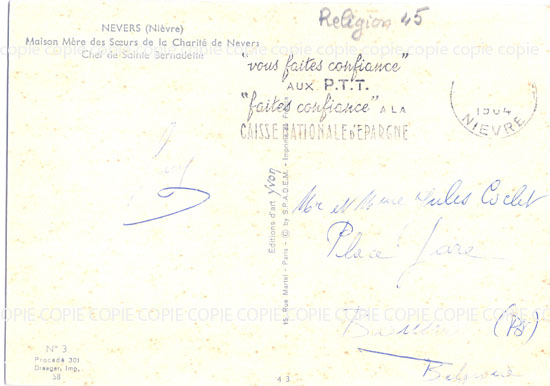 Religion 45
NEVERS (Nièvre)
Maison Mère des Sœurs de la Charité de Nevers
Chef de Sainte Bernadette
"vous faites confiance"
AUX P.T.T.
"faites confiance" A LA
CAISSE NATIONALE D'EPARGNE
1964
NIEVRE
Editions d'art Yvon
15, Rue Martel - Paris - (C) by S.P.A.D.E.M. - Imprimé en France
Mr et Mme Jules
Place Gare
COPIE COPIE COPIE COPIE COPIE COPIE COPIE COPIE COPIE COPIE COPIE
N° 3
Procédé 301
Draeger, Imp.
58
43